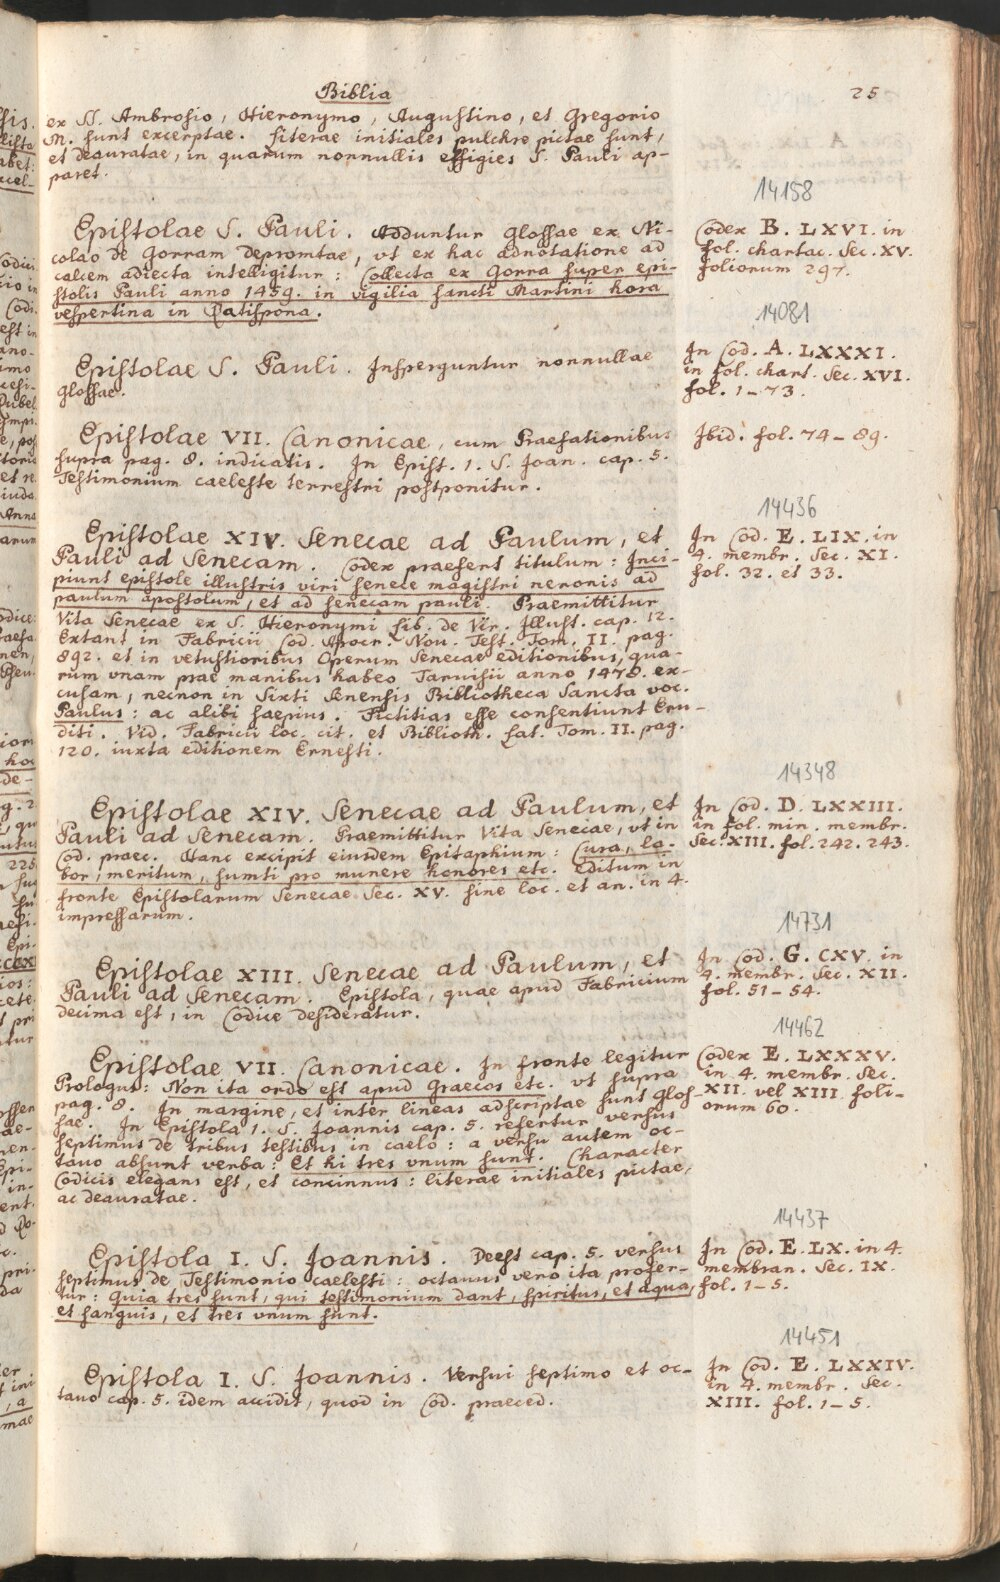 Biblia
25
ex SS. Ambrosio, Hieronymo, Augustino, et Gregorio
M. sunt excerptae. Literae initiales pulchre pictae sunt,
et deauratae, in quarum nonnullis effigies S. Pauli ap-
paret.
14158
Epistolae S. Pauli. Adduntur glossae ex Ni-
colao de Gorram depromtae, vt ex hac adnotatione ad
calcem adiecta intelligitur: Collecta ex Gorra super epi-
stolis Pauli anno 1459. in vigilia sancti Martini hora
vespertina in Ratispona.
Codex B. LXVI. in
fol. chartac. Sec. XV.
foliorum 297.
14081
Epistolae S. Pauli. Insperguntur nonnullae
glossae.
In Cod. A. LXXXI.
in fol. chart. Sec. XVI.
fol. 1-73.
Epistolae VII. Canonicae, cum Praefationibus
supra pag. 8. indicatis. In Epist. 1. S. Joan. cap. 5.
Testimonium caeleste terrestri postponitur.
Ibid. fol. 74-89.
14436
Epistolae XIV. Senecae ad Paulum, et
Pauli ad Senecam. Codex praesert titulum: Inci-
piunt epistole illustris viri senece magistri neronis ad
paulum apostolum, et ad senecam pauli. Praemittitur
Vita Senecae ex S. Hieronymi lib. de Vir. Illust. cap. 12.
Extant in Fabricii Cod. Apocr. Nou. Test. Tom. II. pag.
892. et in vetustioribus Operum Senecae editionibus, qua-
rum vnam prae manibus habeo Taruisii anno 1478. ex-
cusam, necnon in Sixti Senensis Bibliotheca Sancta voc.
Paulus: ac alibi saepius. Fictitias esse consentiunt Eru-
diti. Vid. Fabricii loc. cit. et Biblioth. Lat. Tom. II. pag.
120. iuxta editionem Ernesti.
In Cod. E. LIX. in
4. membr. Sec. XI.
fol. 32. et 33.
14348
Epistolae XIV. Senecae ad Paulum, et
Pauli ad Senecam. Praemittitur Vita Senecae, vt in
Cod. praec. Hanc excipit eiusdem Epitaphium: Cura, la-
bor, meritum, sumti pro munere honores etc. Editum in
fronte Epistolarum Senecae Sec. XV. sine loc. et an. in 4.
impressarum.
In Cod. D. LXXIII.
in fol. min. membr.
Sec. XIII. fol. 242. 243.
14731
Epistolae XIII. Senecae ad Paulum, et
Pauli ad Senecam. Epistola, quae apud Fabricium
decima est, in Codice desideratur.
In Cod. G. CXV. in
4. membr. Sec. XII.
fol. 51-54.
14462
Epistolae VII. Canonicae. In fronte legitur
Prologus: Non ita ordo est apud Graecos etc. vt supra
pag. 8. In margine, et inter lineas adscriptae sunt glos-
sae. In Epistola 1. S. Joannis cap. 5. refertur versus
septimus de tribus testibus in caelo: a versu autem oc-
tauo absunt verba: Et hi tres vnum sunt. Character
Codicis elegans est, et concinnus: literae initiales pictae,
ac deauratae.
Codex E. LXXXV.
in 4. membr. Sec.
XII. vel XIII. foli-
orum 60.
14437
Epistola I. S. Joannis. Deest cap. 5. versus
septimus de Testimonio caelesti: octauus vero ita profer-
tur: Quia tres sunt, qui testimonium dant, spiritus, et aqua,
et sanguis, et tres vnum sunt.
In Cod. E. LX. in 4.
membran. Sec. IX.
fol. 1-5.
14451
Epistola I. S. Joannis. Versui septimo et oc-
tauo cap. 5. idem accidit, quod in Cod. praeced.
In Cod. E. LXXIV.
in 4. membr. Sec.
XIII. fol. 1-5.